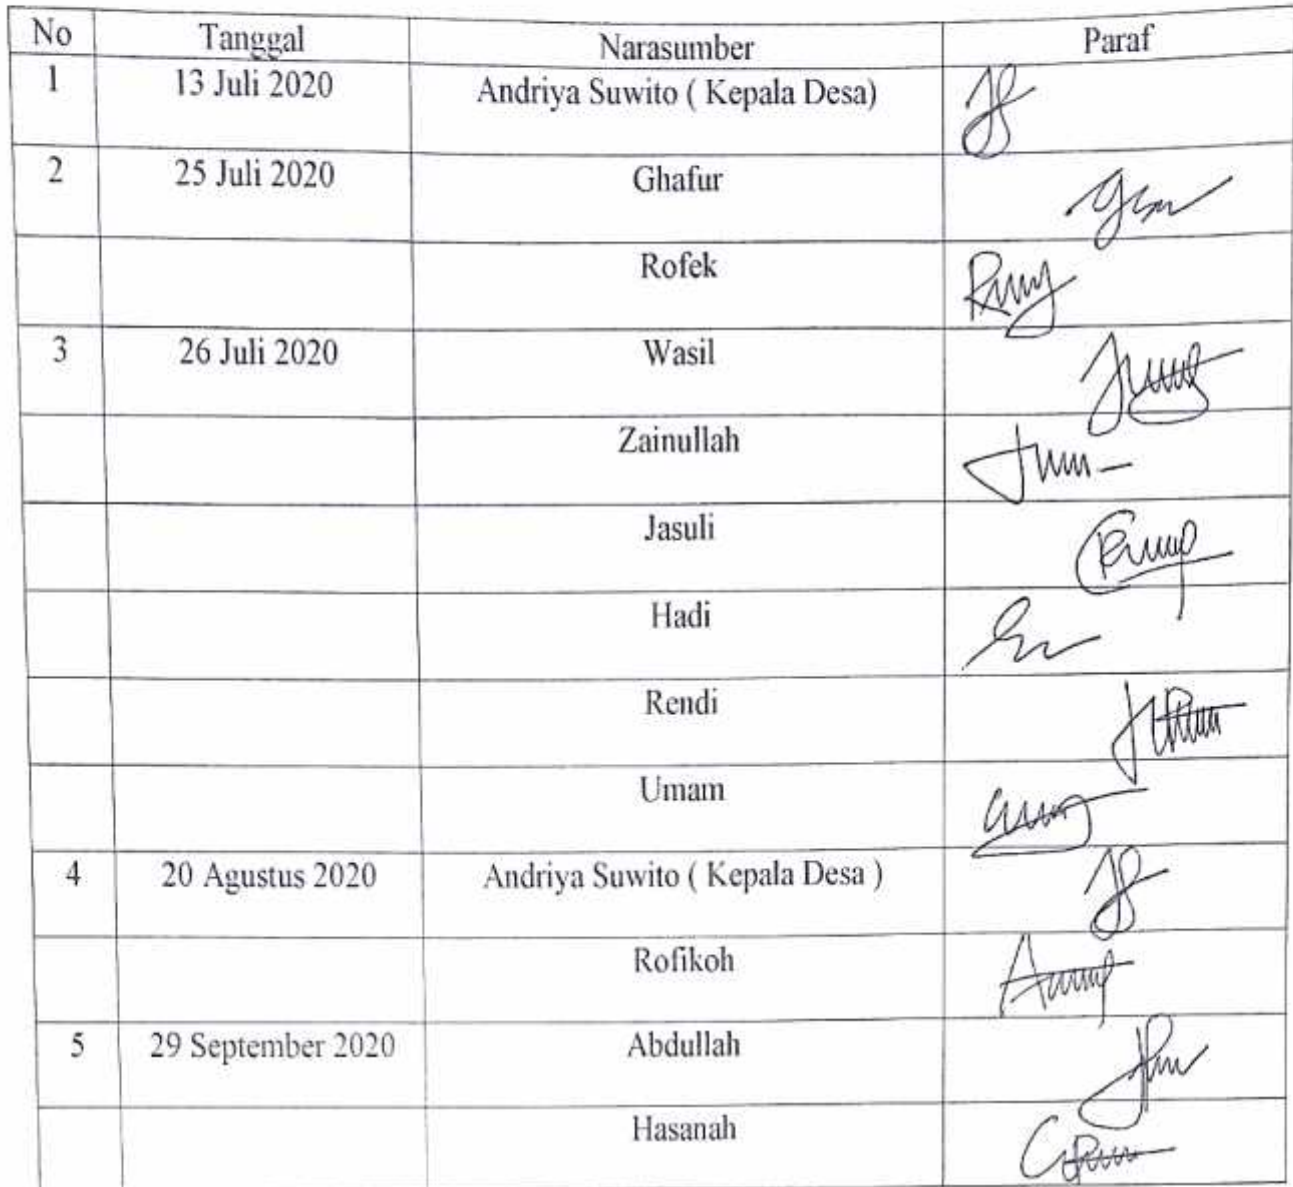 No Tanggal Narasumber Paraf
1 13 Juli 2020 Andriya Suwito ( Kepala Desa)
2 25 Juli 2020 Ghafur
Rofek
3 26 Juli 2020 Wasil
Zainullah
Jasuli
Hadi
Rendi
Umam
4 20 Agustus 2020 Andriya Suwito ( Kepala Desa )
Rofikoh
5 29 September 2020 Abdullah
Hasanah